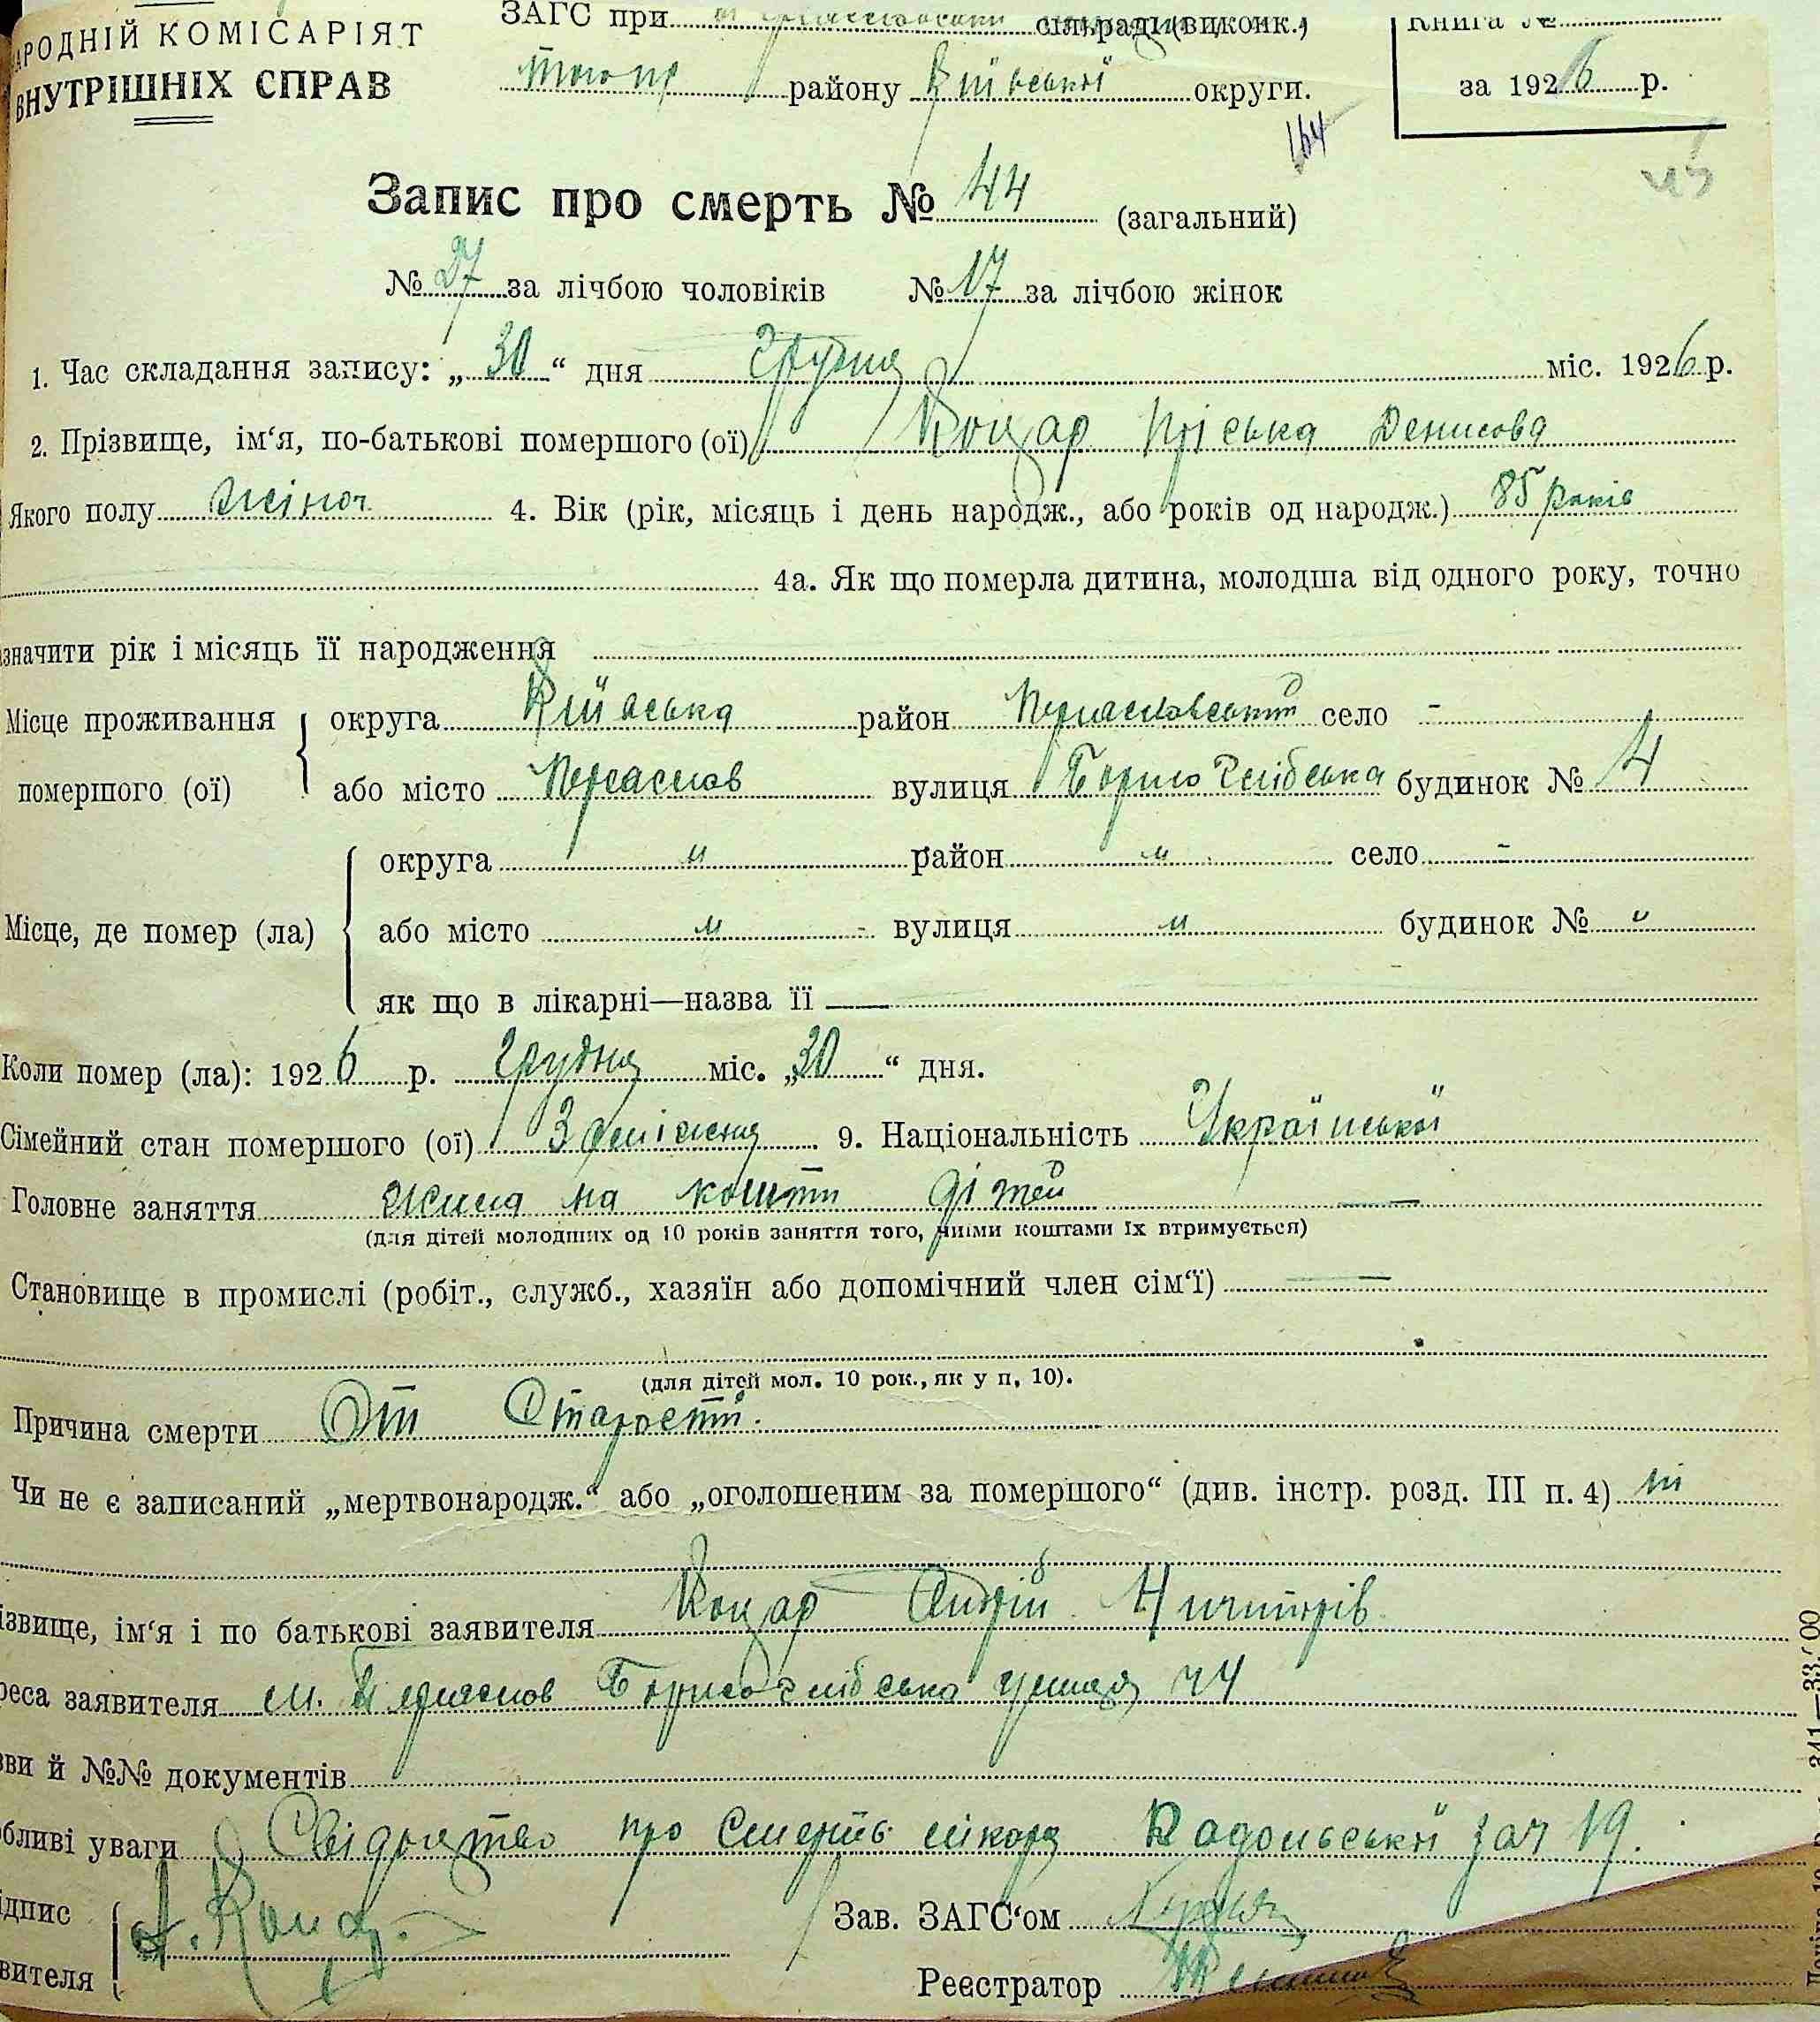 АРОДНІЙ КОМІСАРІЯТ
ВНУТРІШНІХ СПРАВ
ЗАГС при сільради (виконк.)
того пр району Київської округи.
Книга №
за 1926 р.
164
Запис про смерть № 44 (загальний)
№ 27 за лічбою чоловіків № 17 за лічбою жінок
1. Час складання запису: „30“ дня Грудня міс. 1926 р.
2. Прізвище, ім‘я, по-батькові помершого (ої) Коцар Пріська Денисова
Якого полу жіноч. 4. Вік (рік, місяць і день народж., або років од народж.) 85 років
4а. Як що померла дитина, молодша від одного року, точно
значити рік і місяць її народження
Місце проживання помершого (ої) округа Київська район Переяславський село -
або місто Переяслав вулиця Борисо Глібська будинок № 4
Місце, де помер (ла) округа " район " село -
або місто " вулиця " будинок № "
як що в лікарні—назва її —
Коли помер (ла): 1926 р. Грудня міс. „30“ дня.
Сімейний стан помершого (ої) 9. Національність Української
Головне заняття жила на кошти дітей —
(для дітей молодших од 10 років заняття того, чиїми коштами їх втримується)
Становище в промислі (робіт., служб., хазяїн або допомічний член сім‘ї) —
(для дітей мол. 10 рок., як у п, 10).
Причина смерти От Старости.
Чи не є записаний „мертвонародж.“ або „оголошеним за помершого“ (див. інстр. розд. III п. 4) ні
ізвище, ім‘я і по батькові заявителя Коцар Андрій
реса заявителя м. Переяслов Борисоглібська улиця 44
зви й №№ документів
бливі уваги Свідоцтво про Смерть лікаря Радольський зач 19.
ідпис
вителя
А. Коцар.
Зав. ЗАГС‘ом
Реєстратор